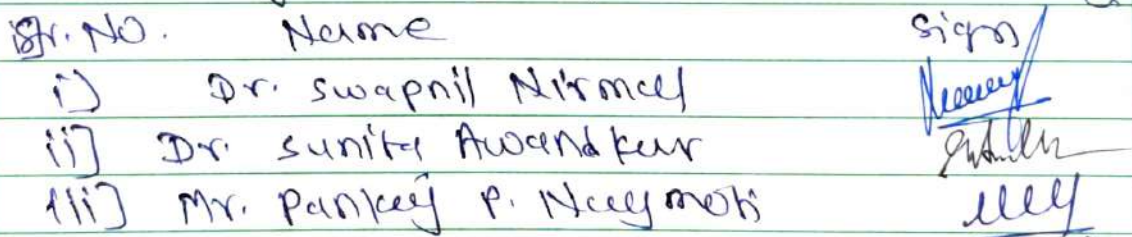 Sr. No. Name Sign
i) Dr. Swapnil Nirmal
ii] Dr. Sunita Awandkar
iii] Mr. Pankaj P. Nagmoti